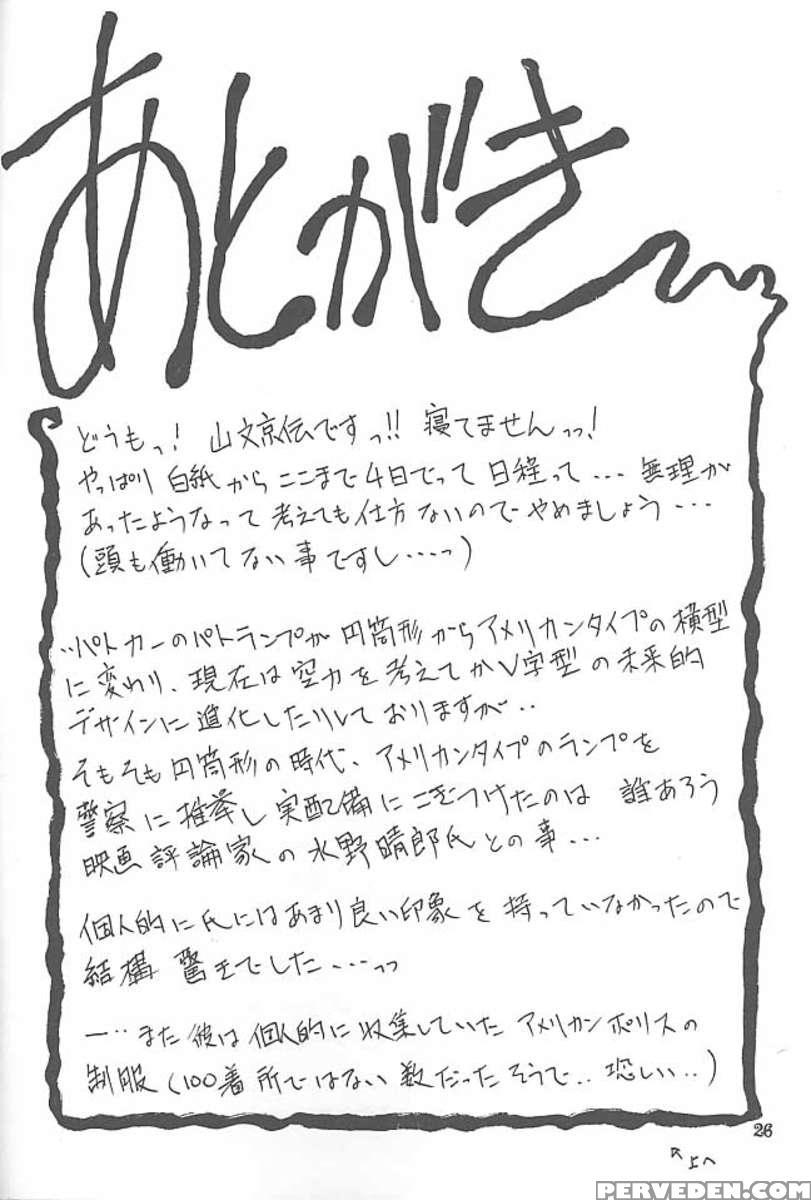 あとがき
どうもっ! 山文京伝ですっ!! 寝てませんっっ!
やっぱり 白紙から ここまで 4日でって 日程って… 無理が
あったようなって 考えても仕方ないので やめましょう…
(頭も働いてない事ですし……っ)
‥パトカーのパトランプが 円筒形からアメリカンタイプの横型
に変わり、現在は空力を考えてかV字型の未来的
デザインに進化したりしておりますが‥
そもそも円筒形の時代、アメリカンタイプのランプを
警察に推挙し実配備にこぎつけたのは 誰あろう
映画評論家の水野晴郎氏との事…
個人的に氏にはあまり良い印象を持っていなかったので
結構 驚きでした…っっ
ー‥また彼は個人的に収集していた アメリカンポリスの
制服(100着所ではない数だったそうで‥恐しい‥)
26
↖上へ
PERVEDEN.COM